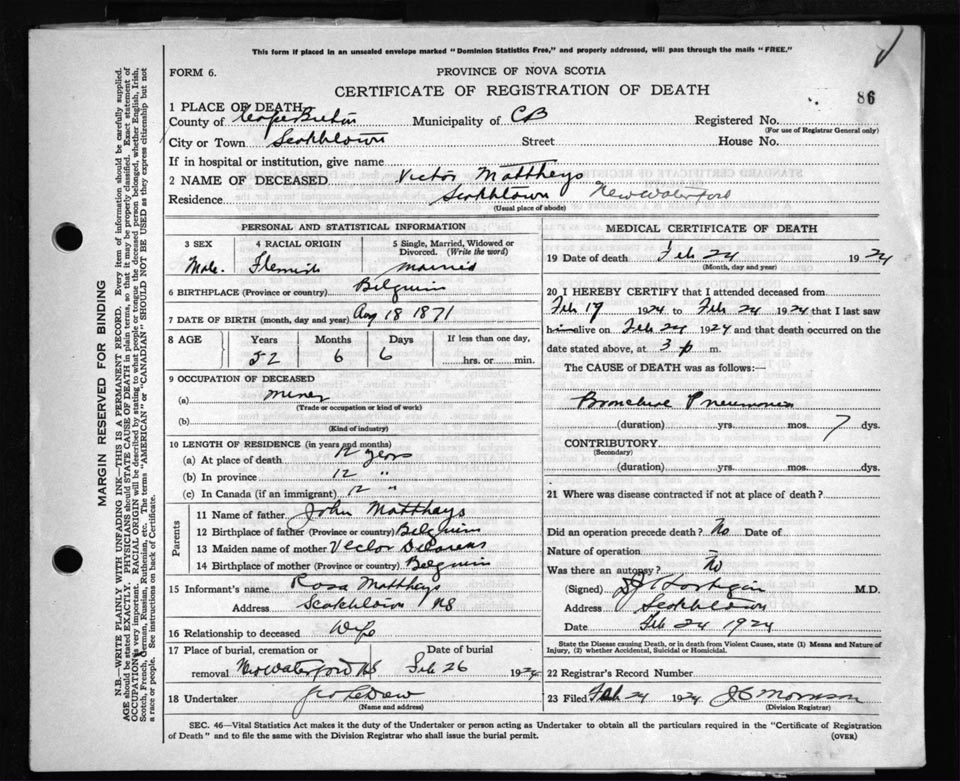 This form if placed in an unsealed envelope marked "Dominion Statistics Free," and properly addressed, will pass through the mails "FREE."
FORM 6.
PROVINCE OF NOVA SCOTIA
CERTIFICATE OF REGISTRATION OF DEATH
86
1 PLACE OF DEATH
County of Cape Breton Municipality of CB Registered No.
(For use of Registrar General only)
City or Town Scotchtown Street House No.
If in hospital or institution, give name
2 NAME OF DECEASED Victor Mattheys
Residence Scotchtown New Waterford
(Usual place of abode)
PERSONAL AND STATISTICAL INFORMATION
3 SEX 4 RACIAL ORIGIN 5 Single, Married, Widowed or Divorced. (Write the word)
Male. Flemish Married
6 BIRTHPLACE (Province or country) Belguim
7 DATE OF BIRTH (month, day and year) Aug 18 1871
8 AGE Years Months Days If less than one day,
52 6 6 hrs. or min.
9 OCCUPATION OF DECEASED
(a) miner
(Trade or occupation or kind of work)
(b)
(Kind of industry)
10 LENGTH OF RESIDENCE (in years and months)
(a) At place of death 12 years
(b) In province 12 "
(c) In Canada (if an immigrant) 12 "
Parents
11 Name of father John Matthays
12 Birthplace of father (Province or country) Belguim
13 Maiden name of mother Vector
14 Birthplace of mother (Province or country) Belguim
15 Informant's name Rosa Matthays
Address Scotchtown NS
16 Relationship to deceased Wife
17 Place of burial, cremation or Date of burial
removal New Waterford NS Feb 26 1924
18 Undertaker
(Name and address)
MEDICAL CERTIFICATE OF DEATH
19 Date of death Feb 24 1924
(Month, day and year)
20 I HEREBY CERTIFY that I attended deceased from
Feb 17 1924 to Feb 24 1924 that I last saw
him alive on Feb 24 1924 and that death occurred on the
date stated above, at 3 p m.
The CAUSE of DEATH was as follows:—
Bronchial Pneumonia
(duration) yrs. mos. 7 dys.
CONTRIBUTORY
(Secondary)
(duration) yrs. mos. dys.
21 Where was disease contracted if not at place of death?
Did an operation precede death? No Date of
Nature of operation
Was there an autopsy? No
(Signed) M.D.
Address Scotchtown
Date Feb 24 1924
State the Disease causing Death, or in death from Violent Causes, state (1) Means and Nature of Injury, (2) whether Accidental, Suicidal or Homicidal.
22 Registrar's Record Number
23 Filed Feb 24 1924 J C Morrison
(Division Registrar)
SEC. 46—Vital Statistics Act makes it the duty of the Undertaker or person acting as Undertaker to obtain all the particulars required in the "Certificate of Registration
of Death" and to file the same with the Division Registrar who shall issue the burial permit. (OVER)
MARGIN RESERVED FOR BINDING
N.B.—WRITE PLAINLY WITH UNFADING INK—THIS IS A PERMANENT RECORD. Every item of information should be carefully supplied.
AGE should be stated EXACTLY. PHYSICIANS should STATE CAUSE OF DEATH in plain terms, so that it may be properly classified. Exact statement of
OCCUPATION is very important. RACIAL ORIGIN will be described by stating to what people or tongue the deceased person belonged, whether English, Irish,
Scotch, French, German, Russian, Ruthenian, etc. The terms "AMERICAN" or "CANADIAN" SHOULD NOT BE USED as they express citizenship but not
a race or people. See instructions on back of Certificate.